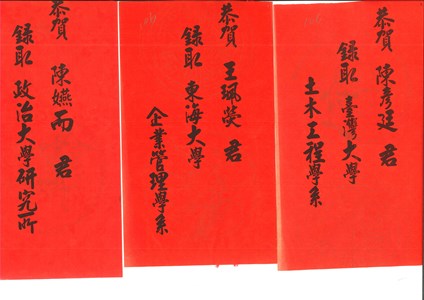 恭賀 陳彥廷 君
錄取 臺灣大學
土木工程學系
恭賀 王珮熒 君
錄取 東海大學
企業管理學系
恭賀 陳嬿而 君
錄取 政治大學研究所